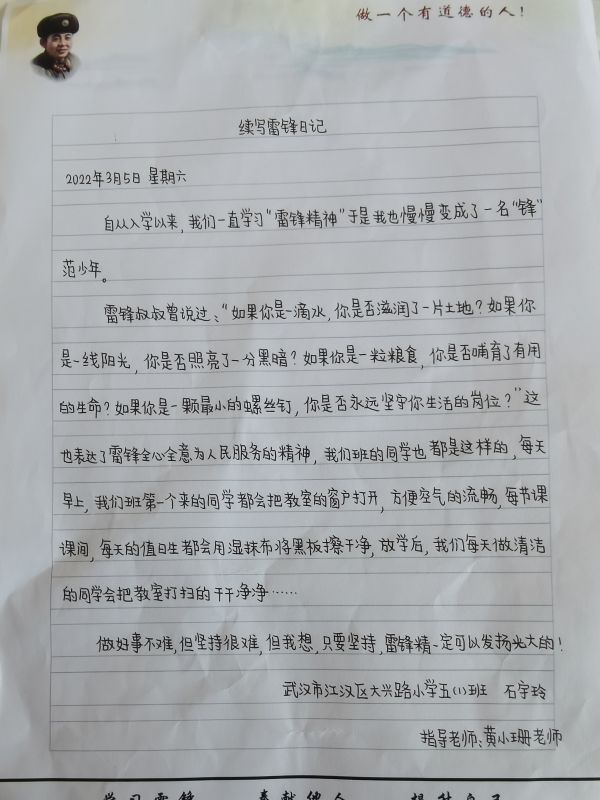 做一个有道德的人！
续写雷锋日记
2022年3月5日 星期六
自从入学以来，我们一直学习"雷锋精神"于是我也慢慢变成了一名"锋"
范少年。
雷锋叔叔曾说过："如果你是一滴水，你是否滋润了一片土地？如果你
是一线阳光，你是否照亮了一分黑暗？如果你是一粒粮食，你是否哺育了有用
的生命？如果你是一颗最小的螺丝钉，你是否永远坚守你生活的岗位？"这
也表达了雷锋全心全意为人民服务的精神，我们班的同学也都是这样的，每天
早上，我们班第一个来的同学都会把教室的窗户打开，方便空气的流畅，每节课
课间，每天的值日生都会用湿抹布将黑板擦干净，放学后，我们每天做清洁
的同学会把教室打扫的干干净净……
做好事不难，但坚持很难，但我想，只要坚持，雷锋精一定可以发扬光大的！
武汉市江汉区大兴路小学五(1)班 石宇玲
指导老师：黄小珊老师
学习雷锋 奉献他人 提升自己